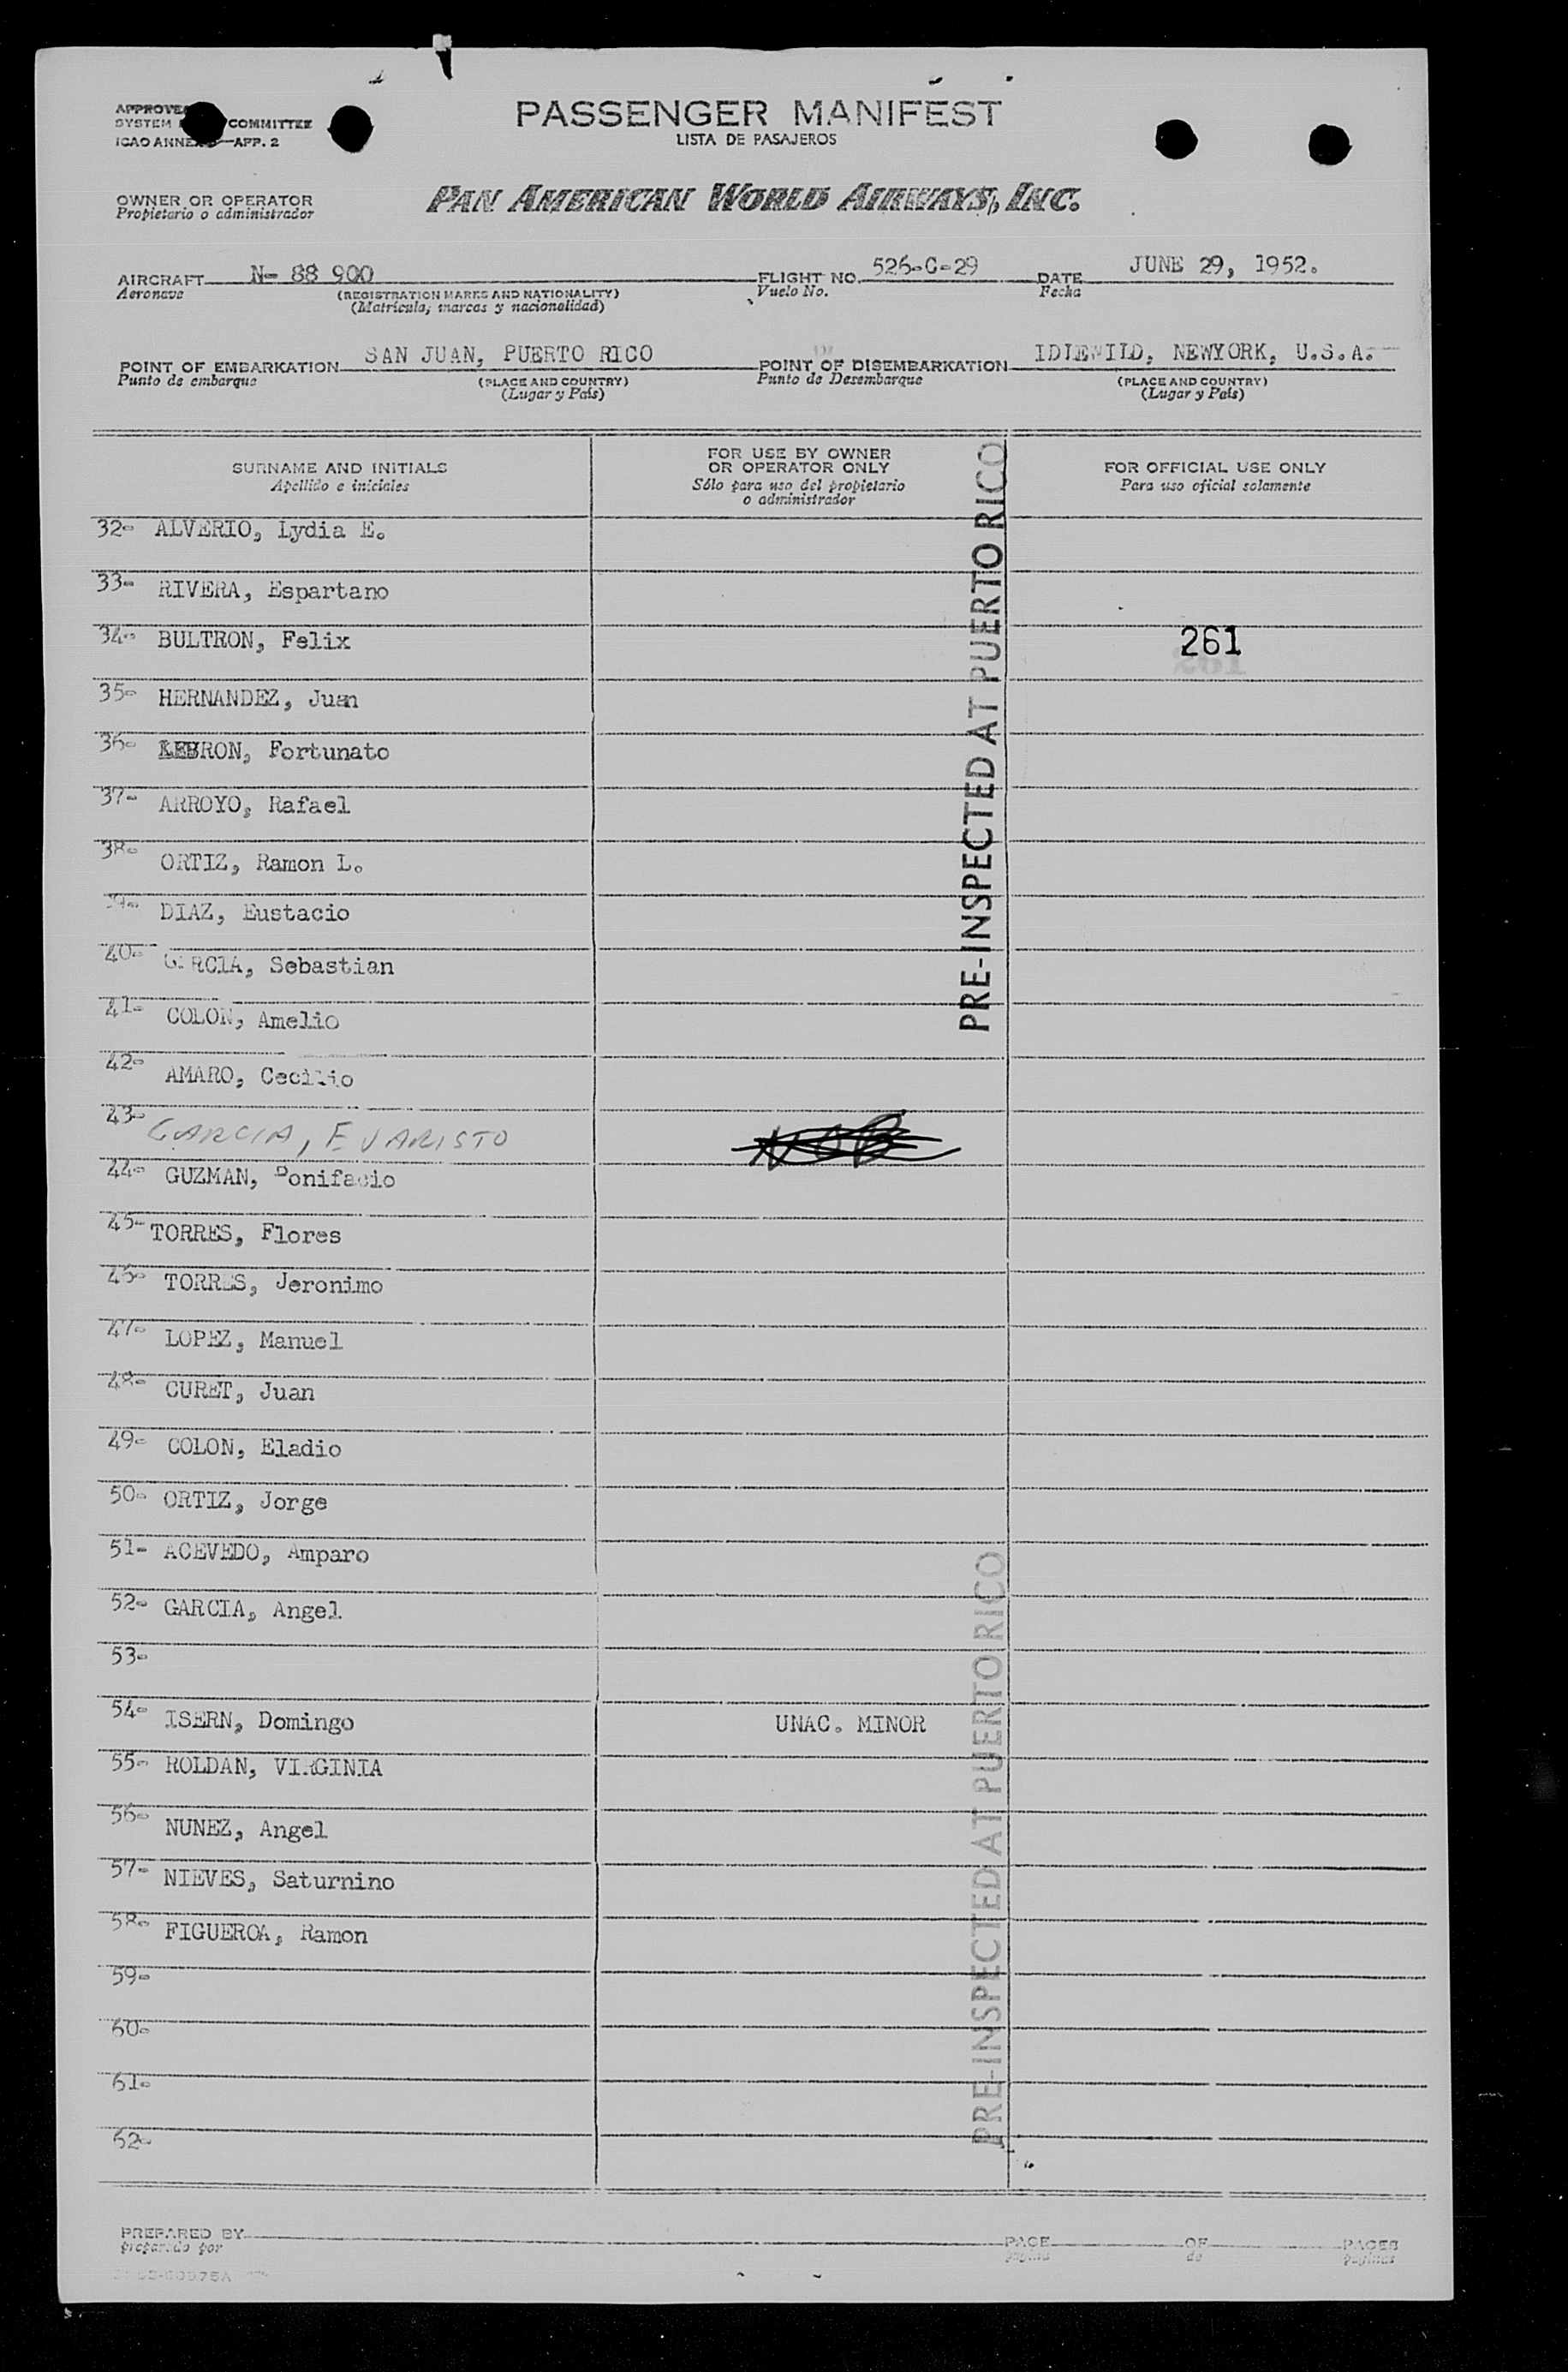 PASSENGER MANIFEST
LISTA DE PASAJEROS
APPROVE
SYSTEM COMMITTEE
ICAO ANNEX APP. 2
OWNER OR OPERATOR
Propietario o administrador
PAN AMERICAN WORLD AIRWAYS, INC.
AIRCRAFT N- 88 900 FLIGHT NO. 526-C-29 DATE JUNE 29, 1952.
Aeronave (REGISTRATION MARKS AND NATIONALITY) Vuelo No. Fecha
(Matrícula, marcas y nacionalidad)
POINT OF EMBARKATION SAN JUAN, PUERTO RICO POINT OF DISEMBARKATION IDLEWILD, NEWYORK, U.S.A.
Punto de embarque (PLACE AND COUNTRY) Punto de Desembarque (PLACE AND COUNTRY)
(Lugar y País) (Lugar y País)
SURNAME AND INITIALS
Apellido e iniciales
FOR USE BY OWNER
OR OPERATOR ONLY
Sólo para uso del propietario
o administrador
FOR OFFICIAL USE ONLY
Para uso oficial solamente
32- ALVERIO, Lydia E.
33- RIVERA, Espartano
34- BULTRON, Felix 261
35- HERNANDEZ, Juan
36- LEBRON, Fortunato
37- ARROYO, Rafael
38- ORTIZ, Ramon L.
39- DIAZ, Eustacio
40- GARCIA, Sebastian
41- COLON, Amelio
42- AMARO, Cecilio
43- GARCIA, EVARISTO
44- GUZMAN, Bonifacio
45- TORRES, Flores
46- TORRES, Jeronimo
47- LOPEZ, Manuel
48- CURET, Juan
49- COLON, Eladio
50- ORTIZ, Jorge
51- ACEVEDO, Amparo
52- GARCIA, Angel
53-
54- ISERN, Domingo UNAC. MINOR
55- ROLDAN, VIRGINIA
56- NUNEZ, Angel
57- NIEVES, Saturnino
58- FIGUEROA, Ramon
59-
60-
61-
62-
PRE-INSPECTED AT PUERTO RICO
PRE-INSPECTED AT PUERTO RICO
PREPARED BY PAGE OF PAGES
preparado por página de páginas